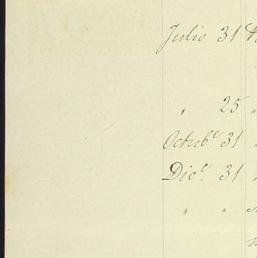 Julio 31
" 25
Octubᵉ 31
Dicᵉ 31
" "